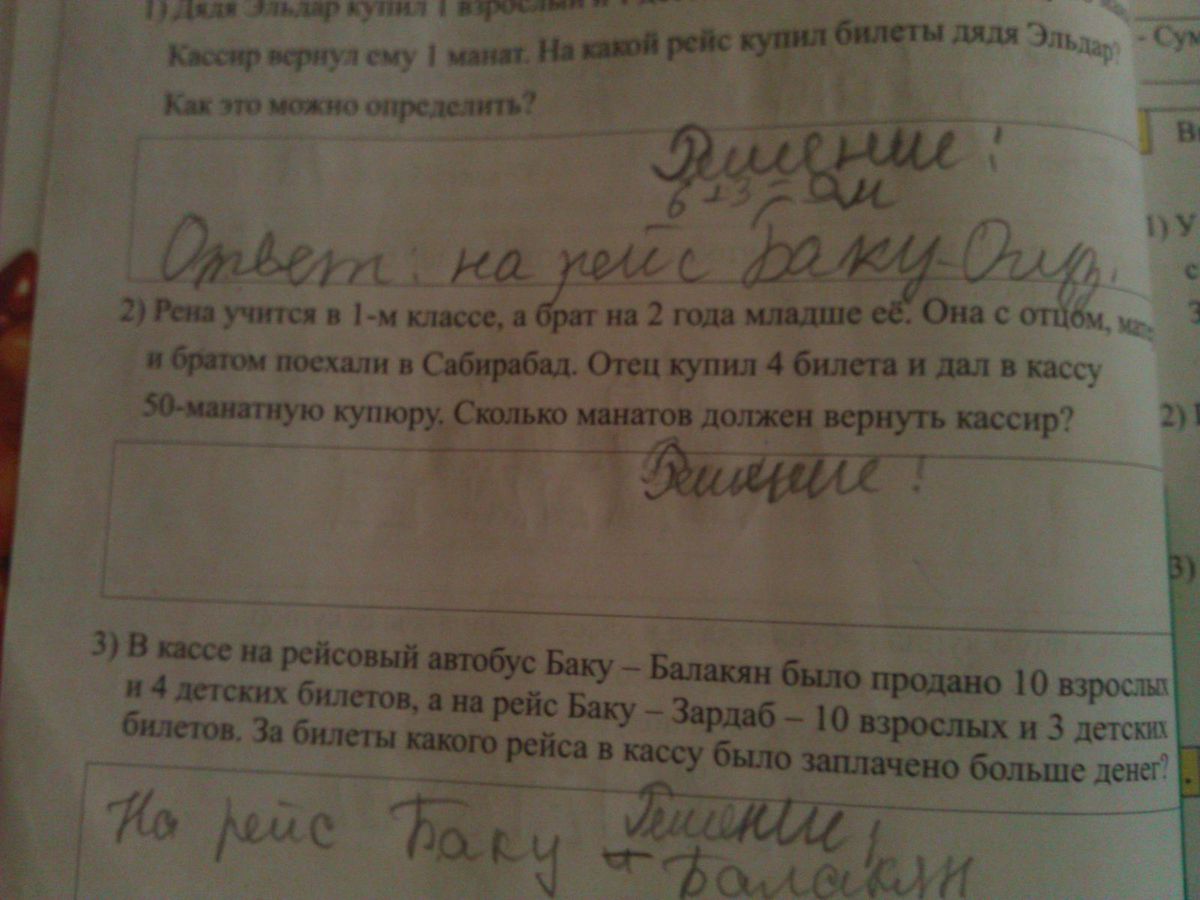 1) Дядя Эльдар купил 1 взрослый и 1
Кассир вернул ему 1 манат. На какой рейс купил билеты дядя Эльдар?
Как это можно определить?
Решение!
6+3=9м
Ответ: на рейс Баку-
2) Рена учится в 1-м классе, а брат на 2 года младше её. Она с отцом,
и братом поехали в Сабирабад. Отец купил 4 билета и дал в кассу
50-манатную купюру. Сколько манатов должен вернуть кассир?
Решение!
3) В кассе на рейсовый автобус Баку – Балакян было продано 10 взрослых
и 4 детских билетов, а на рейс Баку – Зардаб – 10 взрослых и 3 детских
билетов. За билеты какого рейса в кассу было заплачено больше денег?
Решение!
На рейс Баку - Балакян
- Сум
1) У
2)
3)